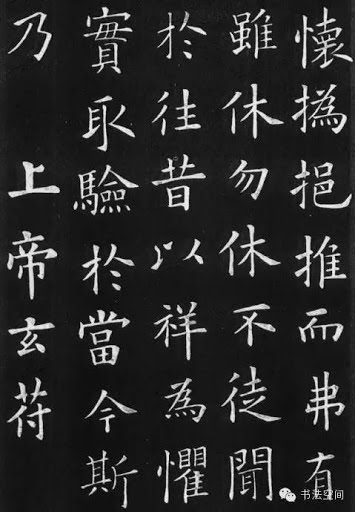 懷撝挹推而弗有
雖休勿休不徒聞
於往昔以祥為懼
實取驗於當今斯
乃 上帝玄苻
书法空间